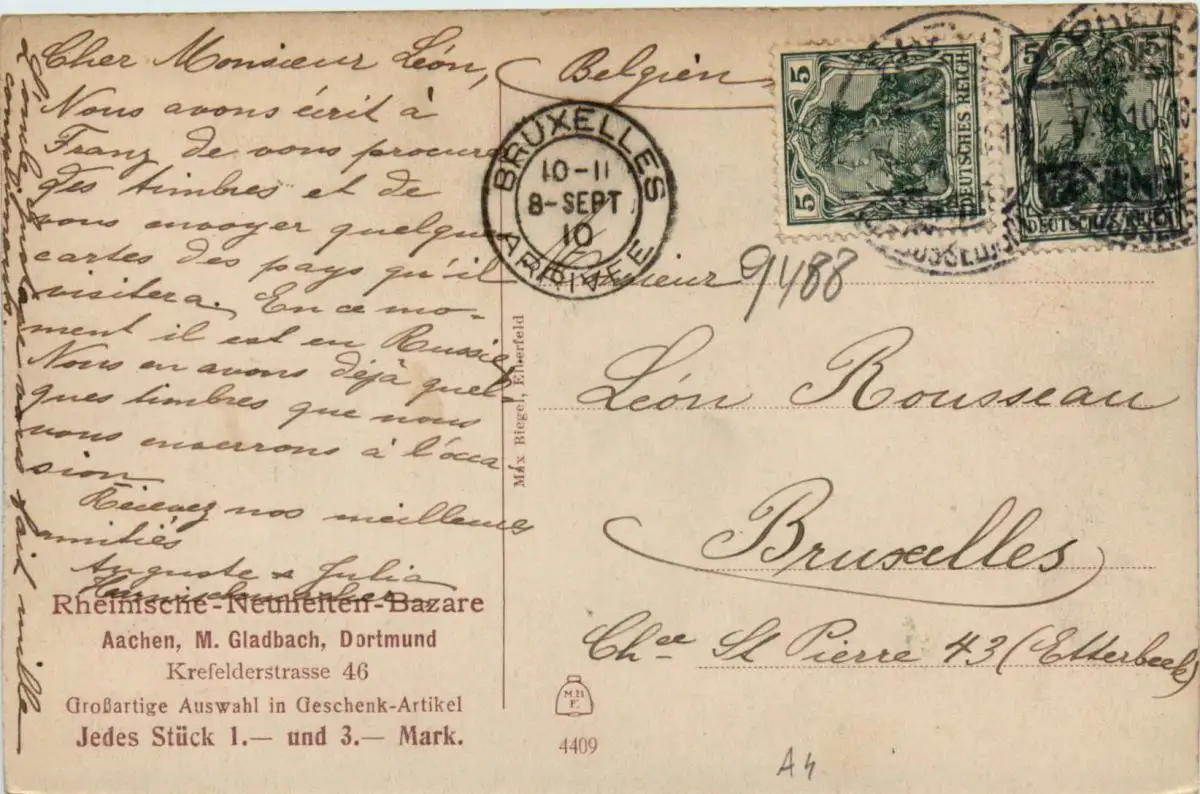 Cher Monsieur Léon,
Nous avons écrit à
Franz de vous procurer
des timbres et de
vous envoyer quelques
cartes des pays qu'il
visitera. En ce mo-
ment il est en Russie,
Nous en avons déjà quel
ques timbres que nous
vous enverrons à l'occa
sion
Recevez nos meilleures
amitiés
Auguste & Julia
vous fait mille
compliments.
Rheinische-Neuheiten-Bazare
Aachen, M. Gladbach, Dortmund
Krefelderstrasse 46
Großartige Auswahl in Geschenk-Artikel
Jedes Stück 1.— und 3.— Mark.
Max Biegel, Elberfeld
Belgien
BRUXELLES
10-11
8-SEPT
10
ARRIVEE
5 5
DEUTSCHES REICH
5 5
DEUTSCHES REICH
9488
Monsieur
Léon Rousseau
Bruxelles
Chee St Pierre 43 (Etterbeek)
4409
A4